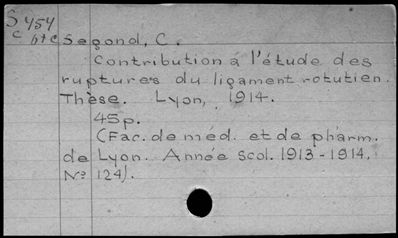 S 454
c
Segond, C.
Contribution á l'étude des
ruptures du ligament rotutien.
Thèse. Lyon, 1914.
45p.
(Fac. de méd. et de phārm.
de Lyon. Année scol. 1913-1914.
Nº 124).